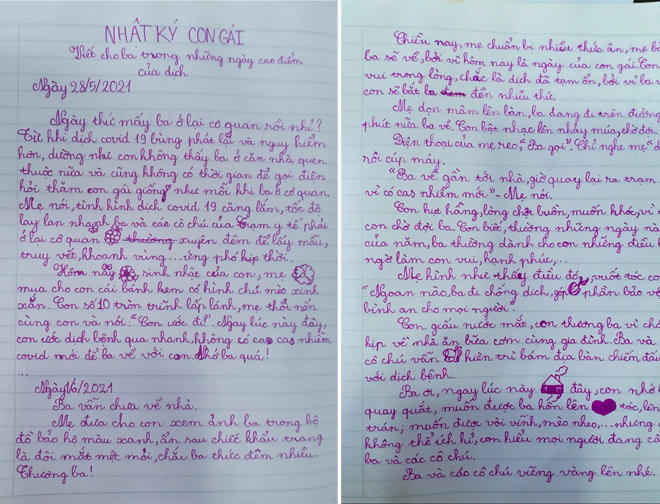 NHẬT KÝ CON GÁI
Viết cho ba trong những ngày cao điểm
của dịch
Ngày 28/5/2021
Ngày thứ mấy ba ở lại cơ quan rồi nhỉ?
Từ khi dịch covid 19 bùng phát lại và nguy hiểm
hơn, dường như con không thấy ba ở căn nhà quen
thuộc nữa và cũng không có thời gian để gọi điện
hỏi thăm con gái giống như mỗi khi ba ở cơ quan.
Mẹ nói, tình hình dịch covid 19 căng lắm, tốc độ
lây lan nhanh, ba và các cô chú của trạm y tế phải
ở lại cơ quan thường xuyên đêm để lấy mẫu,
truy vết, khoanh vùng... ứng phó kịp thời.
Hôm nay, sinh nhật của con, mẹ
mua cho con cái bánh kem có hình chú mèo xinh
xắn. Con số 10 tròn trĩnh lấp lánh, mẹ thổi nến
cùng con và nói: "Con ước đi". Ngay lúc này đây,
con ước dịch bệnh qua nhanh, không có cas cas nhiễm
covid mới để ba về với con. Nhớ ba quá!
...
Ngày 1/6/2021
Ba vẫn chưa về nhà.
Mẹ đưa cho con xem ảnh ba trong bộ
đồ bảo hộ màu xanh, ẩn sau chiếc khẩu trang
là đôi mắt mệt mỏi, chắc ba thức đêm nhiều.
Thương ba!
Chiều nay, mẹ chuẩn bị nhiều thức ăn, mẹ bảo
ba sẽ về, bởi vì hôm nay là ngày của con gái. Con
vui trong lòng, chắc là dịch đã tạm ổn, bởi vì ba
con sẽ bắt ba đem đền nhiều thứ.
Mẹ dọn mâm lên bàn, ba đang đi trên đường
phút nữa ba về. Con bật nhạc lên nhảy múa, chờ đợi.
Điện thoại của mẹ reo, "Ba gọi". Chỉ nghe mẹ
rồi cúp máy.
"Ba về gần tới nhà, giờ quay lại ra trạm
vì có cas nhiễm mới" - Mẹ nói.
Con hụt hẫng, lòng chợt buồn, muốn khóc, vì
con chờ đợi ba. Con biết, thường những ngày
của năm, ba thường dành cho con những điều
ngờ làm con vui, hạnh phúc,...
Mẹ hình như thấy điều đó, vuốt tóc con
"Ngoan nào, ba đi chống dịch, góp phần bảo vệ
bình an cho mọi người".
Con giấu nước mắt, con thương ba vì
kịp về nhà ăn bữa cơm cùng gia đình. Ba và
cô chú vẫn kiên trì bám địa bàn chiến đấu
với dịch bệnh.
Ba ơi, ngay lúc này đây, con nhớ
quay quắt, muốn được ba hôn lên tóc, lên
trán; muốn được vòi vĩnh, mèo nheo,... nhưng
không thể ích kỉ, con hiểu mọi người đang
ba và các cô chú.
Ba và các cô chú vững vàng lên nhé.